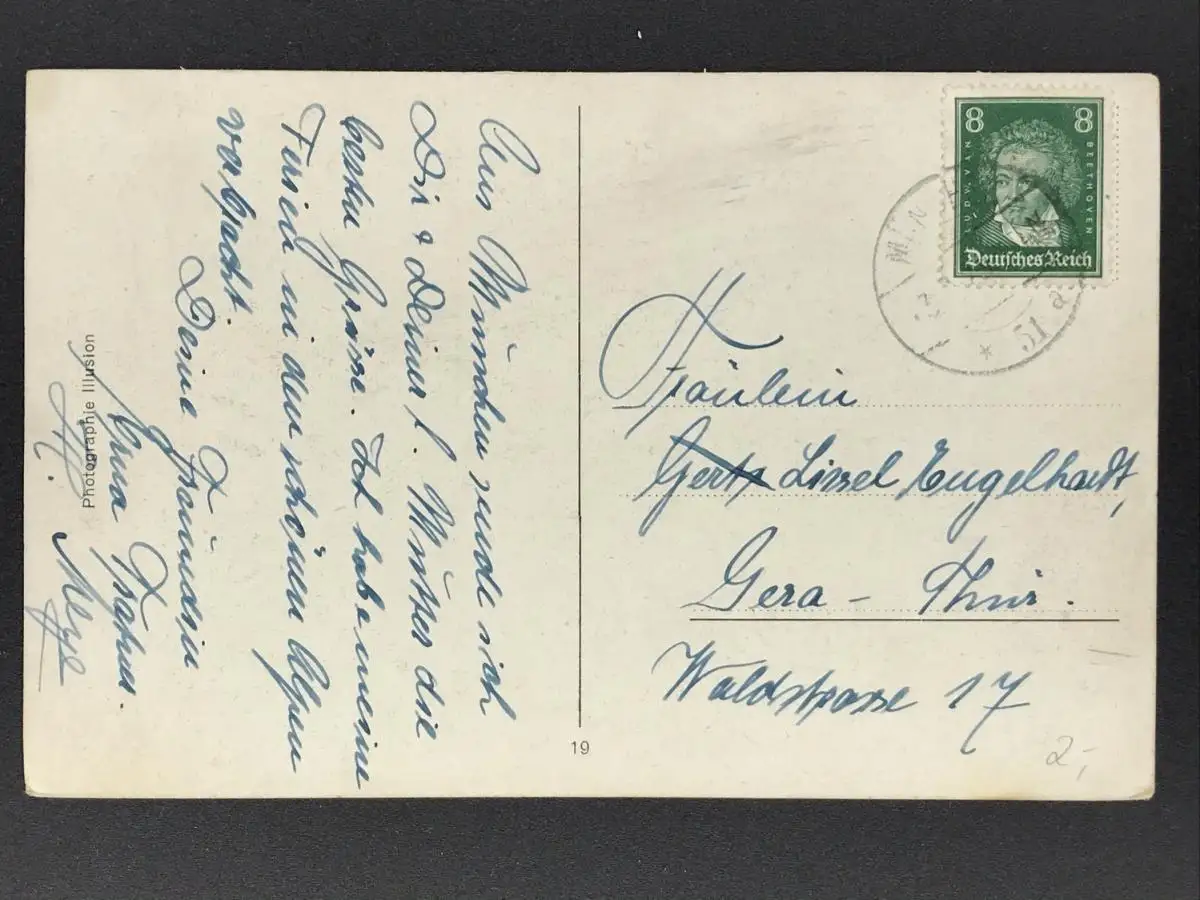 Aus München sende ich
Dir & Deiner l. Mutter die
besten Grüsse. Ich habe meine
Ferien in den schönen Alpen
verbracht.
Deine Freundin
Erna
Photographie Illusion
19
8 8
LUDW. VAN
BEETHOVEN
Deutsches Reich
51 a
Fräulein
Lissel Engelhardt,
Gera - Thür.
Waldstrasse 17
2,-